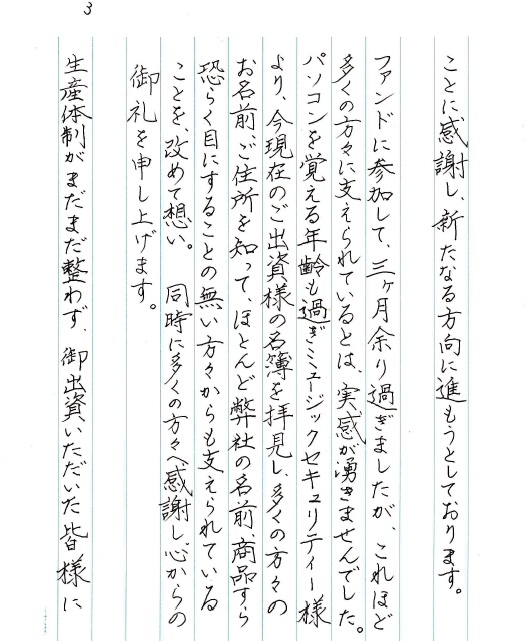 3
ことに感謝し、新たなる方向に進もうとしております。
ファンドに参加して、三ヶ月余り過ぎましたが、これほど
多くの方々に支えられているとは、実感が湧きませんでした。
パソコンを覚える年齢も過ぎミュージックセキュリティー様
より、今現在のご出資様の名簿を拝見し、多くの方々の
お名前、ご住所を知って、ほとんど弊社の名前、商品すら
恐らく目にすることの無い方々からも支えられている
ことを、改めて想い。 同時に多くの方々へ感謝し、心からの
御礼を申し上げます。
生産体制がまだまだ整わず、御出資いただいた皆様に